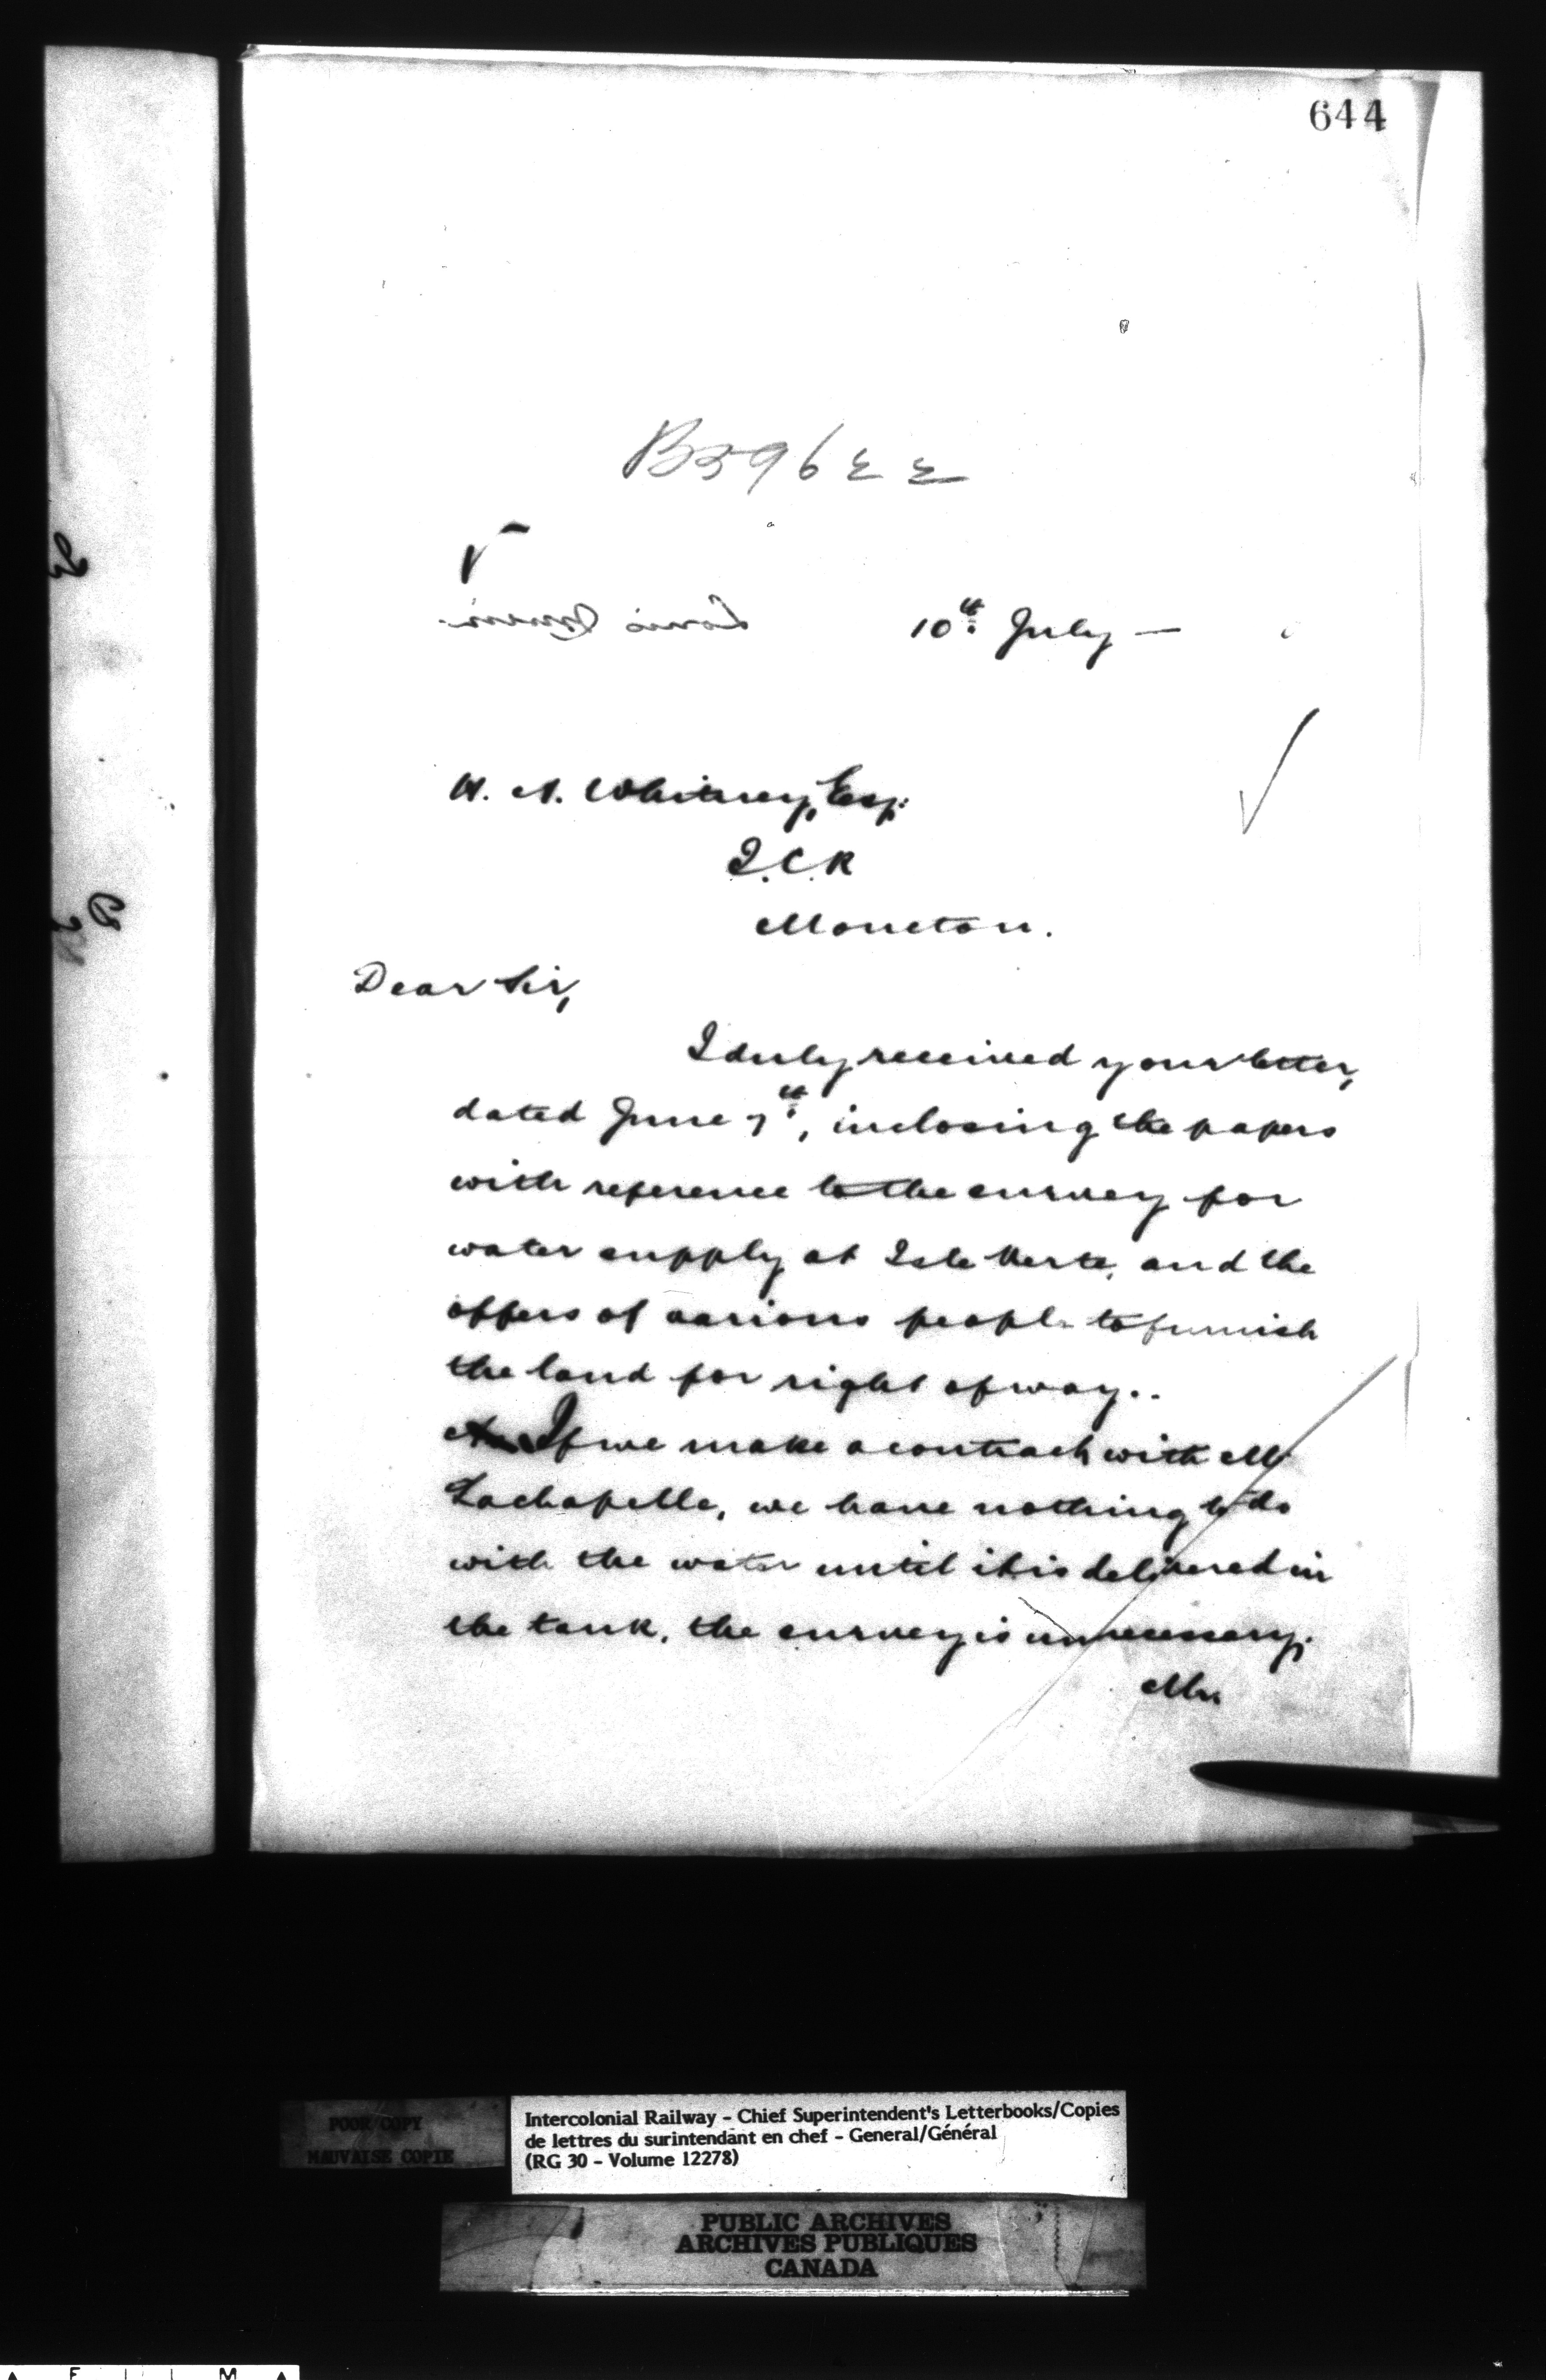 644
B59622
10th July —
H. A. Whitney, Esq:
I.C.R
Moncton.
Dear Sir,
I duly received your letter,
dated June 7th, inclosing the papers
with reference to the survey for
water supply at Isle Verte, and the
offers of various people to furnish
the land for right of way..
If we make a contract with Mr
Lachapelle, we have nothing to do
with the water until it is delivered in
the tank, the survey is unnecessary.
Mr.
POOR COPY
MAUVAISE COPIE
Intercolonial Railway - Chief Superintendent's Letterbooks/Copies
de lettres du surintendant en chef - General/Général
(RG 30 - Volume 12278)
PUBLIC ARCHIVES
ARCHIVES PUBLIQUES
CANADA